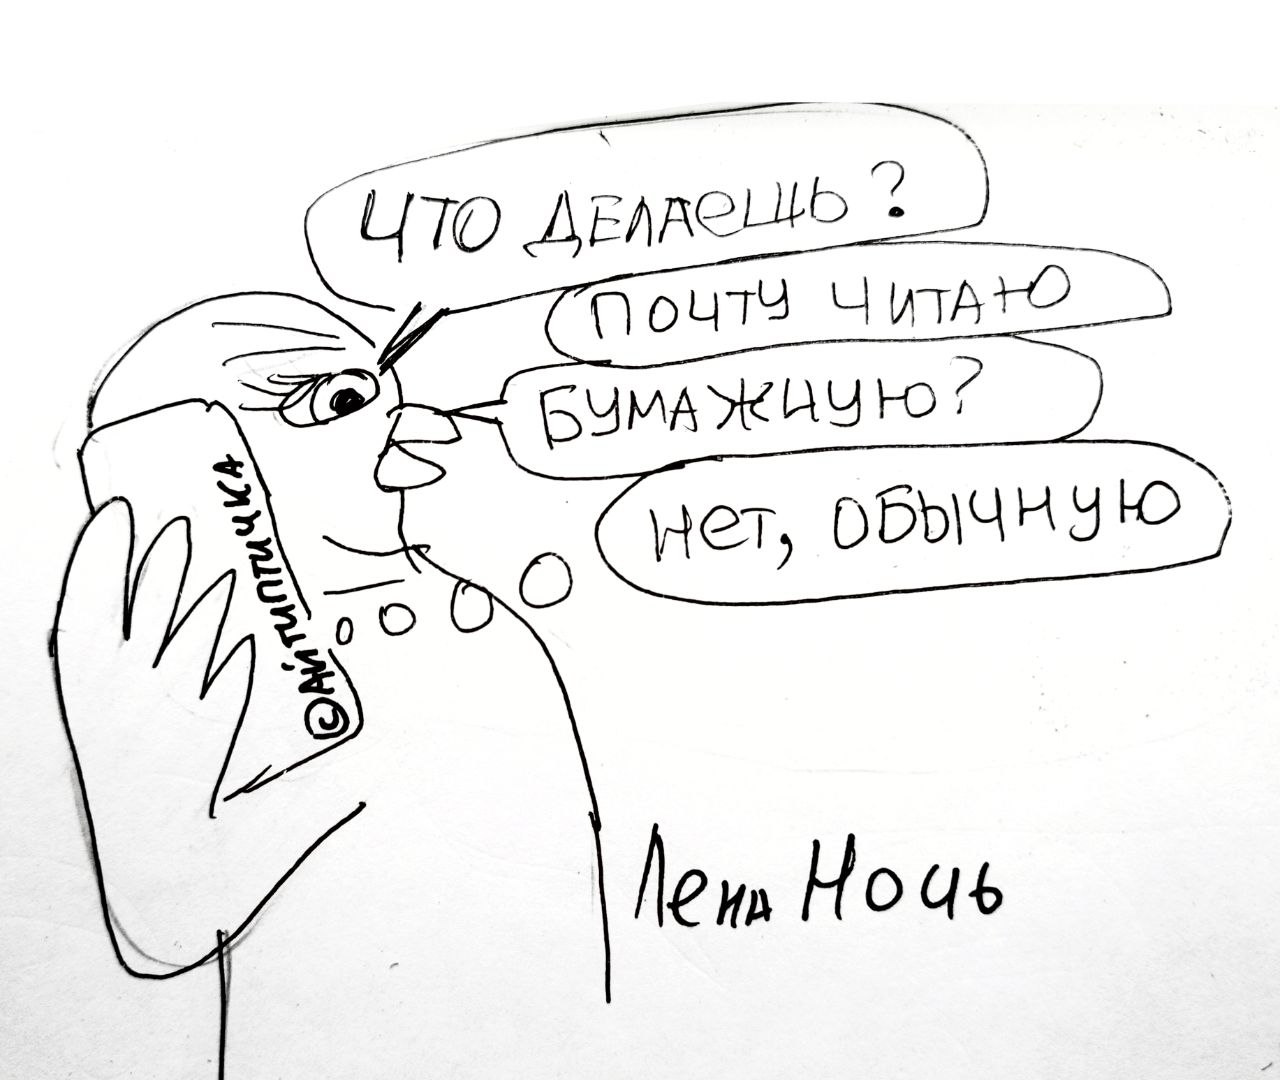 ЧТО ДЕЛАЕШЬ?
ПОЧТУ ЧИТАЮ
БУМАЖНУЮ?
НЕТ, ОБЫЧНУЮ
©АЙТИПТИЧКА
Лена Ночь